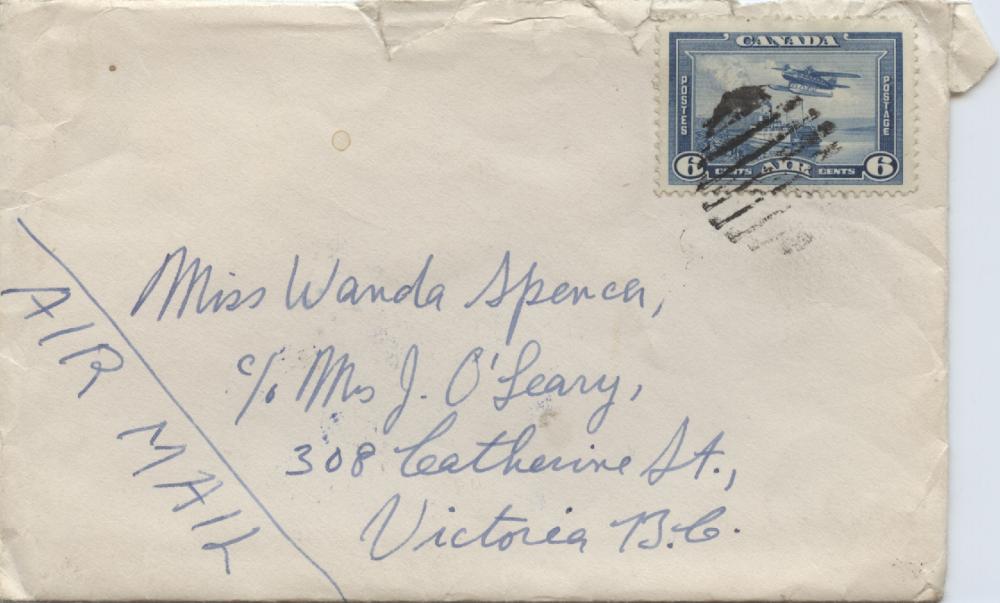 CANADA
POSTES
POSTAGE
6 CENTS AIR CENTS 6
AIR MAIL
Miss Wanda Spencer,
c/o Mrs J. O'Leary,
308 Catherine St.,
Victoria B.C.